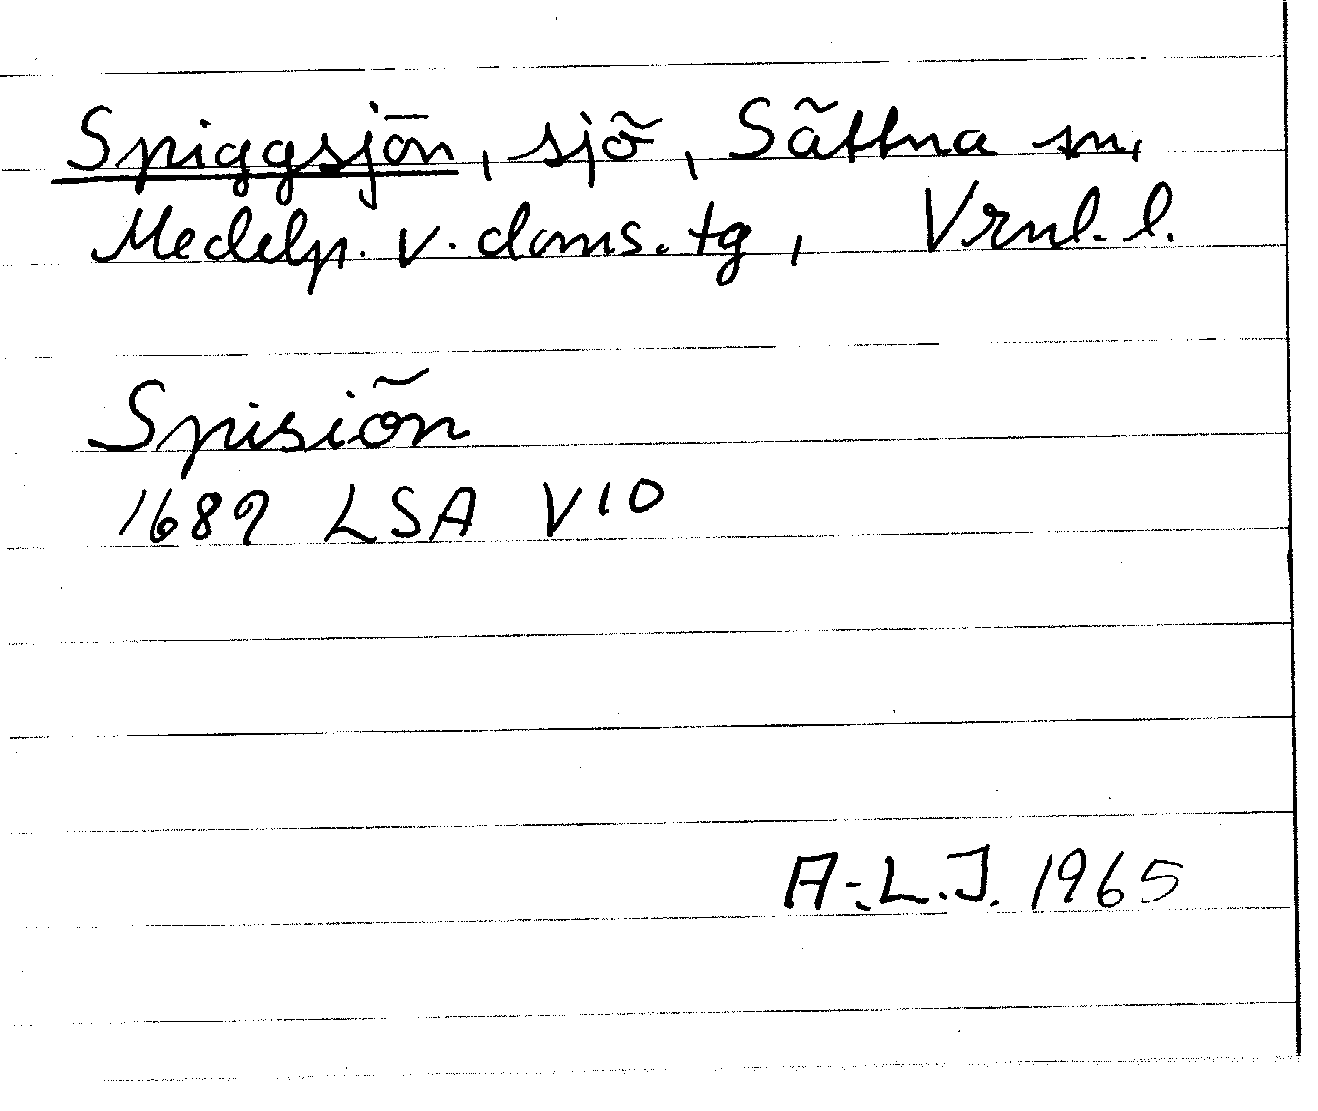 Spiggsjön, sjö, Sättna sn,
Medelp. v. doms. tg, Vrnl. l.
Spisiön
1689 LSA V10
A.-L.J. 1965